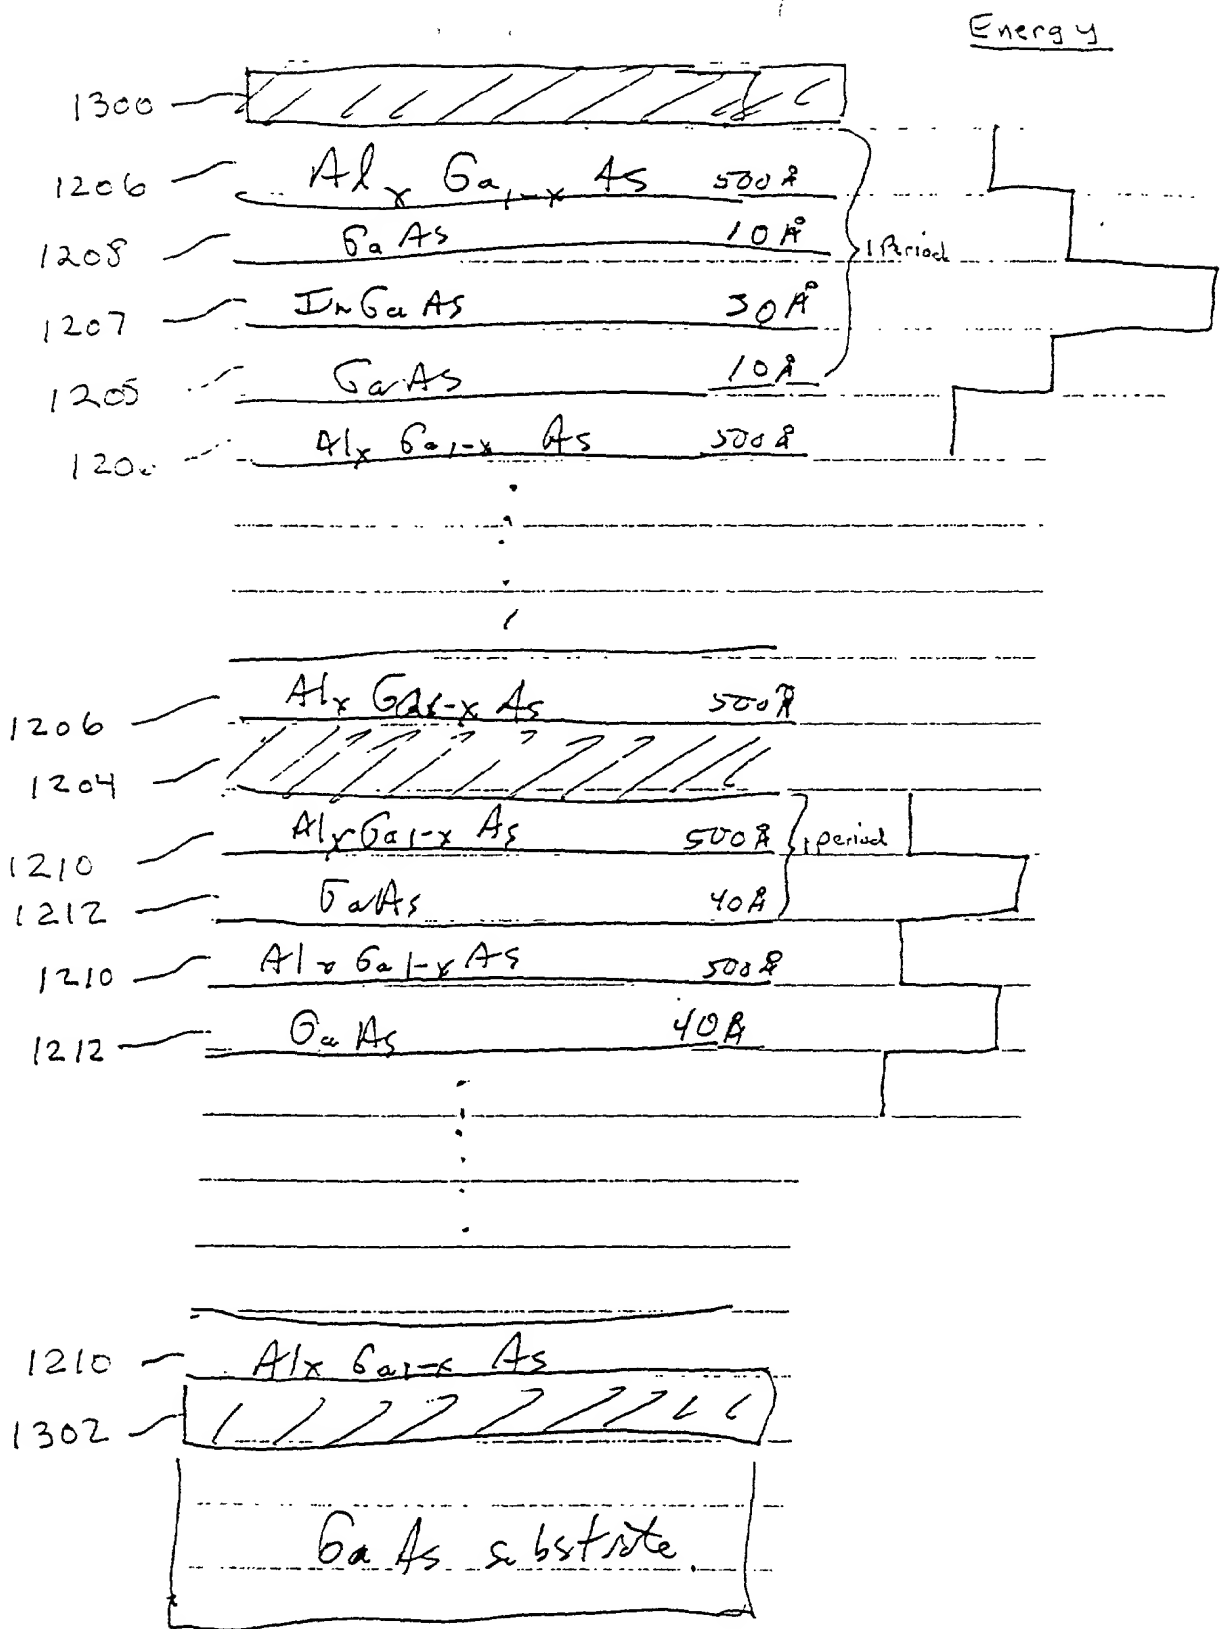 Energy
1300
1206 AlxGa1-xAs 500Å
1208 GaAs 10Å
1 Period
1207 InGaAs 30Å
1205 GaAs 10Å
AlxGa1-xAs 500Å
1206 AlxGa1-xAs 500Å
1204
1210 AlxGa1-xAs 500Å 1 period
1212 GaAs 40Å
1210 AlxGa1-xAs 500Å
1212 GaAs 40Å
1210 AlxGa1-xAs
1302
GaAs substrate